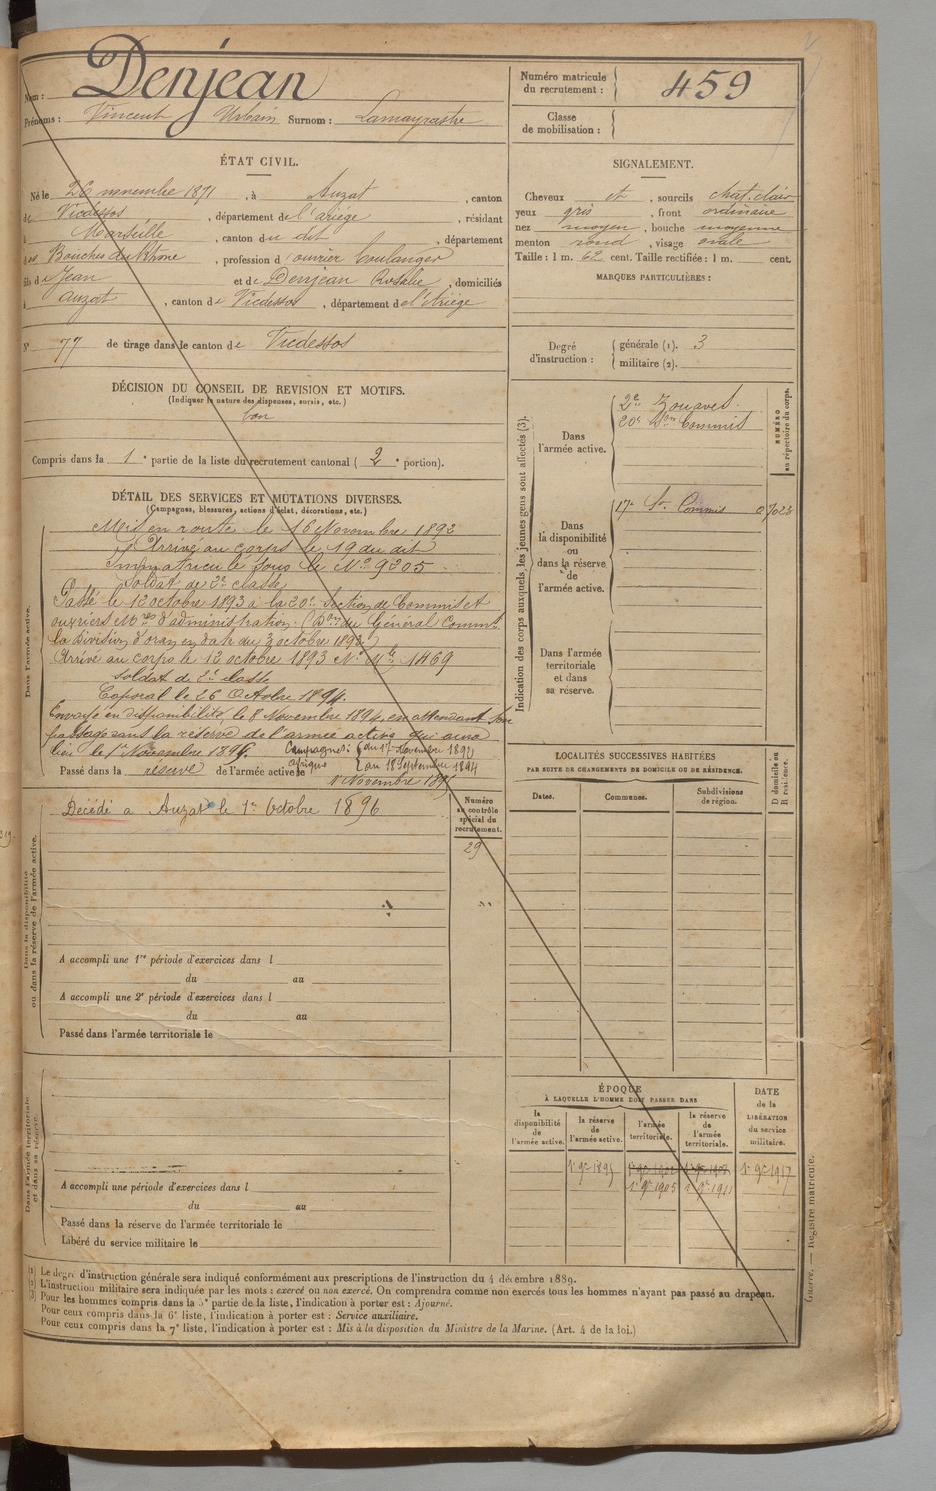 Nom : Denjean
Prénoms : Vincent Urbain Surnom : Lamayrastre
Numéro matricule du recrutement : 459
Classe de mobilisation :
ÉTAT CIVIL.
Né le 26 novembre 1871, à Auzat, canton
de Vicdessos, département de l'ariège, résidant
à Marseille, canton du dit, département
des Bouches du Rhône, profession d'ouvrier boulanger
fils de Jean et de Denjean Rosalie, domiciliés
à auzat, canton de Vicdessos, département de l'Ariège
N° 77 de tirage dans le canton de Vicdessos
SIGNALEMENT.
Cheveux et, sourcils chat. clair
yeux gris, front ordinaire
nez moyen, bouche moyenne
menton rond, visage ovale
Taille : 1 m. 62 cent. Taille rectifiée : 1 m. cent.
MARQUES PARTICULIÈRES :
Degré d'instruction : générale (1). 3
militaire (2).
DÉCISION DU CONSEIL DE REVISION ET MOTIFS.
(Indiquer la nature des dispenses, sursis, etc.)
bon
Compris dans la 1e partie de la liste du recrutement cantonal (2e portion).
DÉTAIL DES SERVICES ET MUTATIONS DIVERSES.
(Campagnes, blessures, actions d'éclat, décorations, etc.)
Dans l'armée active.
Mis en route le 16 Novembre 1892
Arrivé au corps le 19 du dit
Immatriculé sous le No 9205
Soldat de 2e classe
Passé le 12 octobre 1893 à la 20e Section de Commis et
ouvriers Mres d'administration. (Don du Général Commt
la Division d'oran en date du 3 octobre 1893)
Arrivé au corps le 12 octobre 1893 No Mle 1469
soldat de 2e classe
Caporal le 26 Octobre 1894.
Envoyé en disponibilité, le 8 Novembre 1894, en attendant son
passage dans la réserve de l'armée active qui aura
lieu le 1er Novembre 1895.
Campagnes : Afrique du 17 Novembre 1892
au 18 Septembre 1894
Passé dans la réserve de l'armée active le 1er Novembre 1895
Dans la disponibilité ou dans la réserve de l'armée active.
Décédé a Auzat le 1er Octobre 1896
Numéro au contrôle spécial du recrutement.
29
A accompli une 1re période d'exercices dans l
du au
A accompli une 2e période d'exercices dans l
du au
Passé dans l'armée territoriale le
Dans l'armée territoriale et dans sa réserve.
A accompli une période d'exercices dans l
du au
Passé dans la réserve de l'armée territoriale le
Libéré du service militaire le
Indication des corps auxquels les jeunes gens sont affectés (3).
NUMÉRO au répertoire du corps.
Dans l'armée active.
2e Zouaves.
20e Son Commis
Dans la disponibilité ou dans la réserve de l'armée active.
17e Son Commis 07023
Dans l'armée territoriale et dans sa réserve.
LOCALITÉS SUCCESSIVES HABITÉES
PAR SUITE DE CHANGEMENTS DE DOMICILE OU DE RÉSIDENCE.
Dates. Communes. Subdivisions de région. D domicile ou R résidence.
ÉPOQUE
À LAQUELLE L'HOMME DOIT PASSER DANS
la disponibilité de l'armée active.
la réserve de l'armée active.
l'armée territoriale.
la réserve de l'armée territoriale.
DATE de la LIBÉRATION du service militaire.
1er 9bre 1895
1er 9bre 1905 1er 9bre 1911
1er 9bre 1917
(1) Le degré d'instruction générale sera indiqué conformément aux prescriptions de l'instruction du 4 décembre 1889.
(2) L'instruction militaire sera indiquée par les mots : exercé ou non exercé. On comprendra comme non exercés tous les hommes n'ayant pas passé au drapeau.
(3) Pour les hommes compris dans la 5e partie de la liste, l'indication à porter est : Ajourné.
Pour ceux compris dans la 6e liste, l'indication à porter est : Service auxiliaire.
Pour ceux compris dans la 7e liste, l'indication à porter est : Mis à la disposition du Ministre de la Marine. (Art. 4 de la loi.)
Guerre. — Registre matricule.